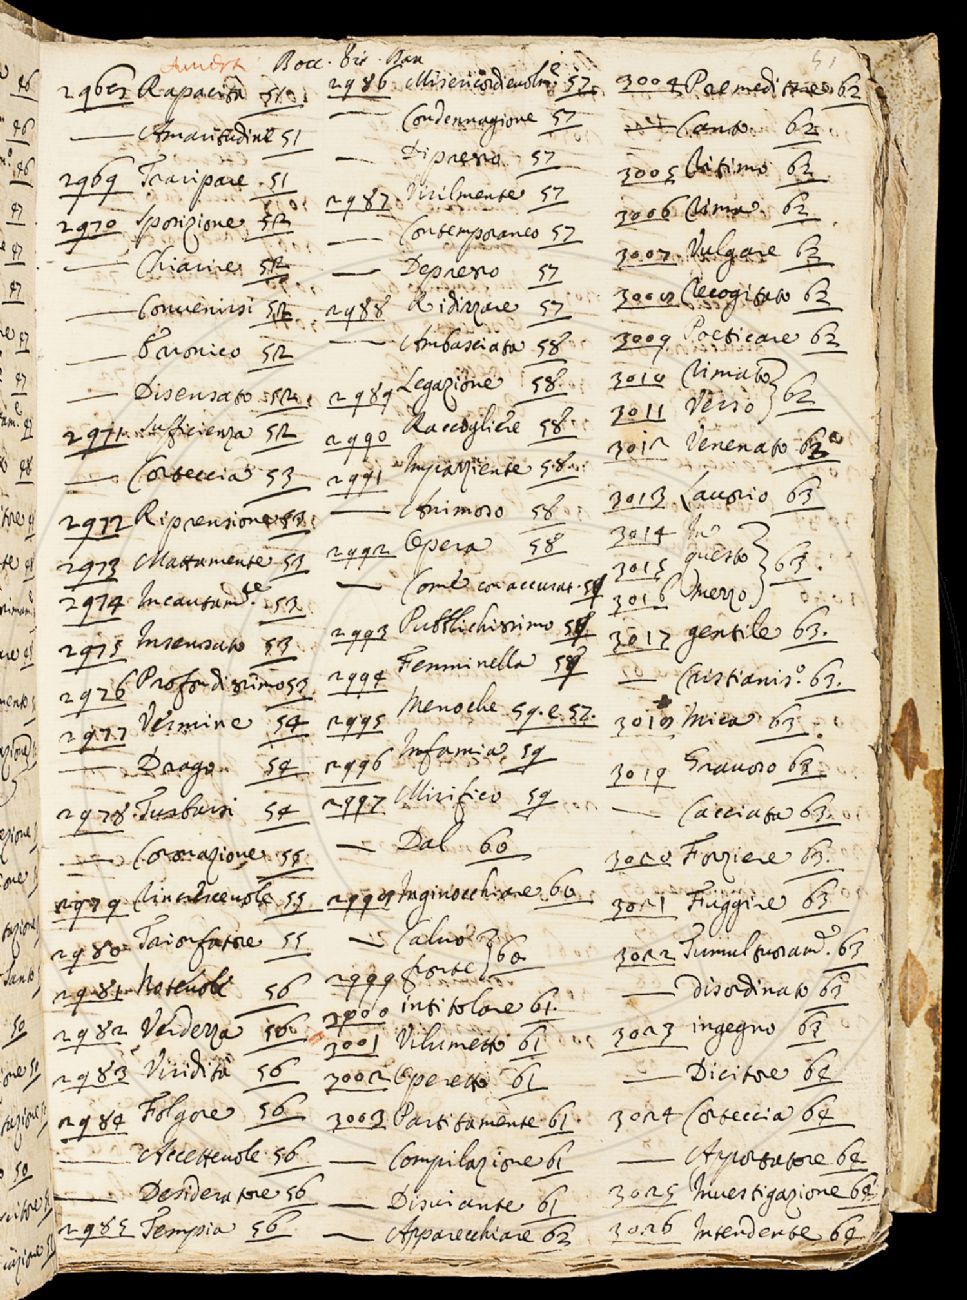 Bocc. Vit. Dan
51
2968 Rapacità 51
— Amaritudine 51
2969 Traripare 51
2970 Sposizione 52
— Chiarire 52
— Convenirsi 52
— Erronico 52
— Disensato 52
2971 Sufficienza 52
— Corteccia 53
2972 Riprensione 53
2973 Mattamente 53
2974 Incautam.te 53
2975 Insensato 53
2976 Profondissimo 53
2977 Vermine 54
— Drago 54
2978 Turbarsi 54
— Coronazione 55
2979 Rincrescevole 55
2980 Trionfatore 55
2981 Notevole 56
2982 Verdezza 56
2983 Viridità 56
2984 Folgore 56
— Accettevole 56
— Desideratore 56
2985 Tempia 56
2986 Misericordievolm.e 57
— Condennagione 57
— Dipresso 57
2987 Virilmente 57
— Contemporaneo 57
— Depresso 57
2988 Ridirizzare 57
— Ambasciata 58
2989 Legazione 58
2990 Raccogliere 58
2991 Impaziente 58
— Animoso 58
2992 Opera 58
— Come con accusat. 59
2993 Pubblichissimo 59
2994 Femminella 59
2995 Menoche 59. e 57.
2996 Infamia 59
2997 Mirifico 59
— Dal 60
2998 Inginocchiare 60
— Calvo
2999 forte 60
3000 intitolare 61
3001 Vilumetto 61
3002 Operetta 61
3003 Partitamente 61
— Compilazione 61
— Disviante 61
— Apparecchiare 62
3004 Premeditare 62
— Canto 62
3005 Ritimo 62
3006 Rima 62
3007 Vulgare 62
3008 Recogitato 62
3009 Poeticare 62
3010 Rimato
3011 Verso 62
3012 Venenato 62
3013 Lavorio 63
3014 In
3015 questo 63
3016 Mezzo
3017 gentile 63.
— Cristianis.o 63.
3018 Mica 63
3019 Gravoso 63
— Cacciata 63.
3020 Forziere 63.
3021 Fuggire 63
3022 Tumultuosam.e 63
— Disordinato 63
3023 ingegno 63
— Dicitore 64
3024 Corteccia 64
— Apportatore 64
3025 Investigazione 64
3026 Intendente 64